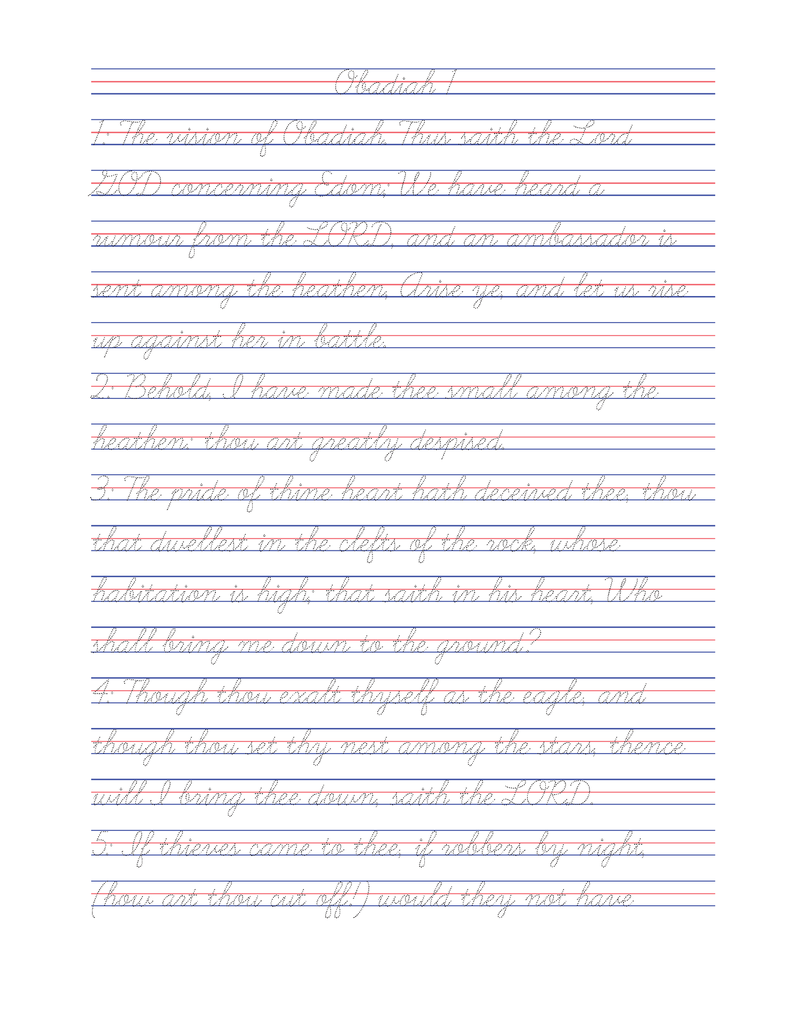 Obadiah 1
1: The vision of Obadiah. Thus saith the Lord
GOD concerning Edom; We have heard a
rumour from the LORD, and an ambassador is
sent among the heathen, Arise ye, and let us rise
up against her in battle.
2: Behold, I have made thee small among the
heathen: thou art greatly despised.
3: The pride of thine heart hath deceived thee, thou
that dwellest in the clefts of the rock, whose
habitation is high; that saith in his heart, Who
shall bring me down to the ground?
4: Though thou exalt thyself as the eagle, and
though thou set thy nest among the stars, thence
will I bring thee down, saith the LORD.
5: If thieves came to thee, if robbers by night,
(how art thou cut off!) would they not have